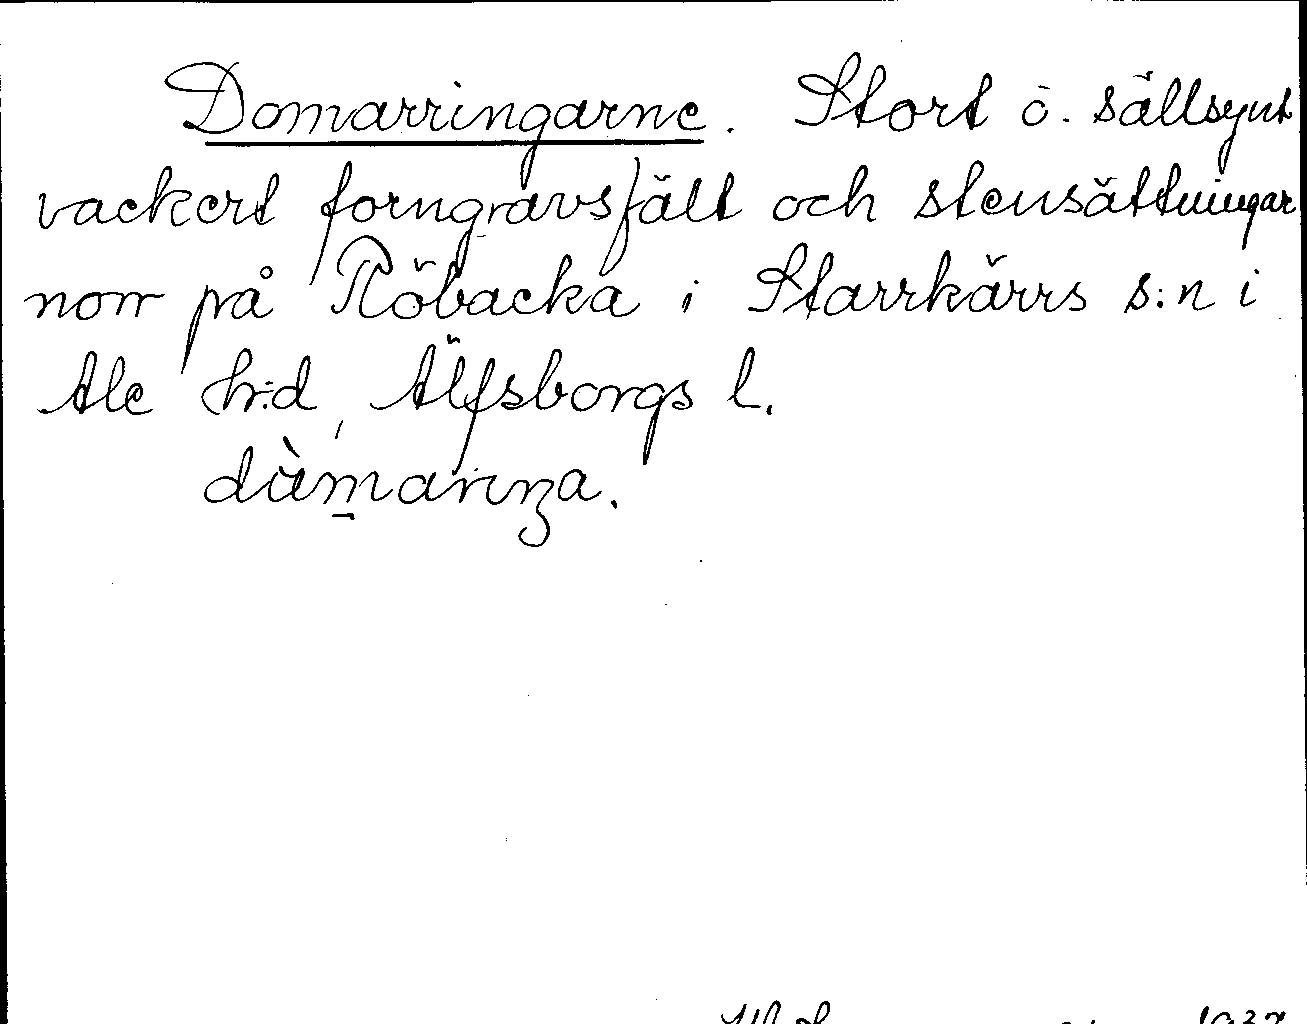 Domarringarne. Stort o. sällsynt
vackert forngravsfält och stensättningar
norr på Röbacka i Starrkärrs s:n i
Ale h:d, Älfsborgs l.
dåmariŋa.